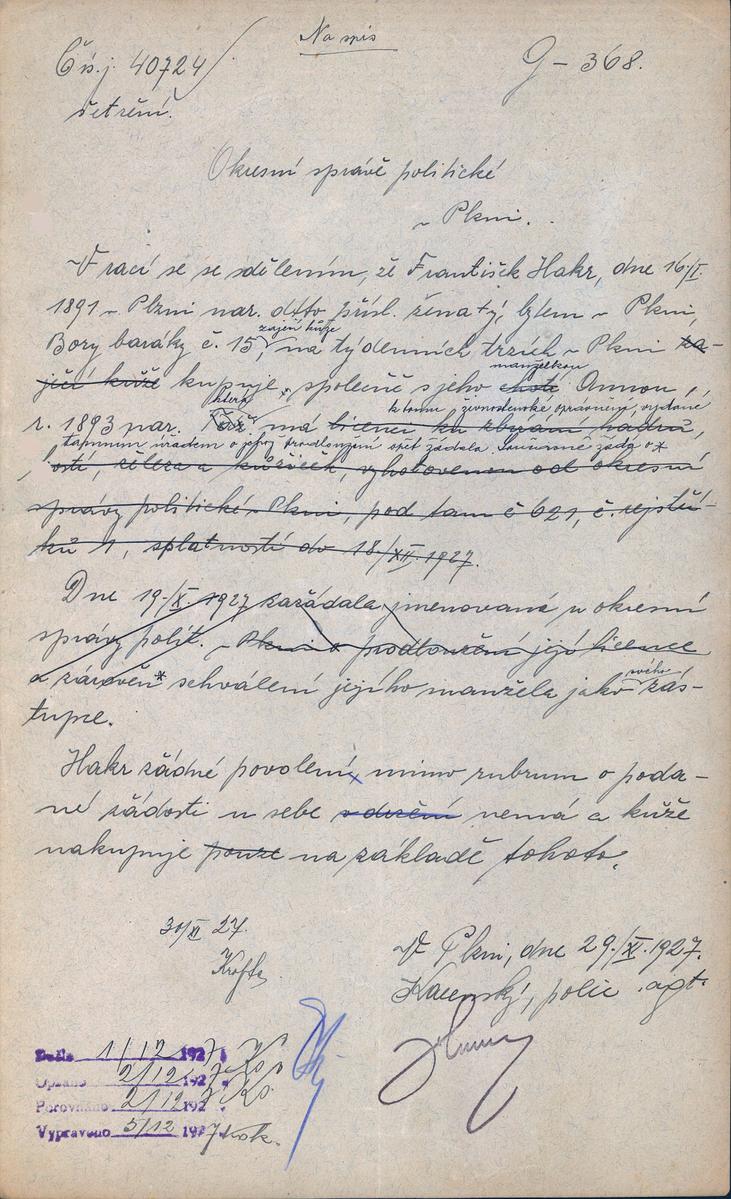 Na spis
Čís. j. 40724
G – 368.
šetření.
Okresní správě politické
v Plzni.
Vrací se se sdělením, že František Hakr, dne 16/I.
1891 v Plzni nar. dtto přísl. ženatý, bytem v Plzni,
zaječí kůže
Bory baráky č. 15, na týdenních trzích v Plzni za-
manželkou
ječí kůže kupuje, společně s jeho chotí Annou,
která k tomu živnostenské oprávnění, vydané
r. 1893 nar. má licenci ku sbírání hadrů,
tamním úřadem o jehož prodloužení opět žádala. Současně žádá o *
kostí, železa a kůžiček, vyhotovenou od okresní
správy politické v Plzni, pod tam č 621, č. rejstří-
ků 1, splatností do 18/XII. 1927.
Dne 19./X. 1927 zažádala jmenovaná u okresní
správy polit. v Plzni o prodloužení její licence
a zároveň * schválení jejího manžela jako svého zás-
tupce.
Hakr žádné povolení, mimo rubrum o poda-
né žádosti u sebe v držení nemá a kůže
nakupuje pouze na základě tohoto.
30/XI 27.
Krofta
V Plzni, dne 29./XI. 1927.
polic. agt.
Došlo 1/12 1927
Opsáno 2/12 1927
Porovnáno 2/12 1927
Vypraveno 5/12 1927